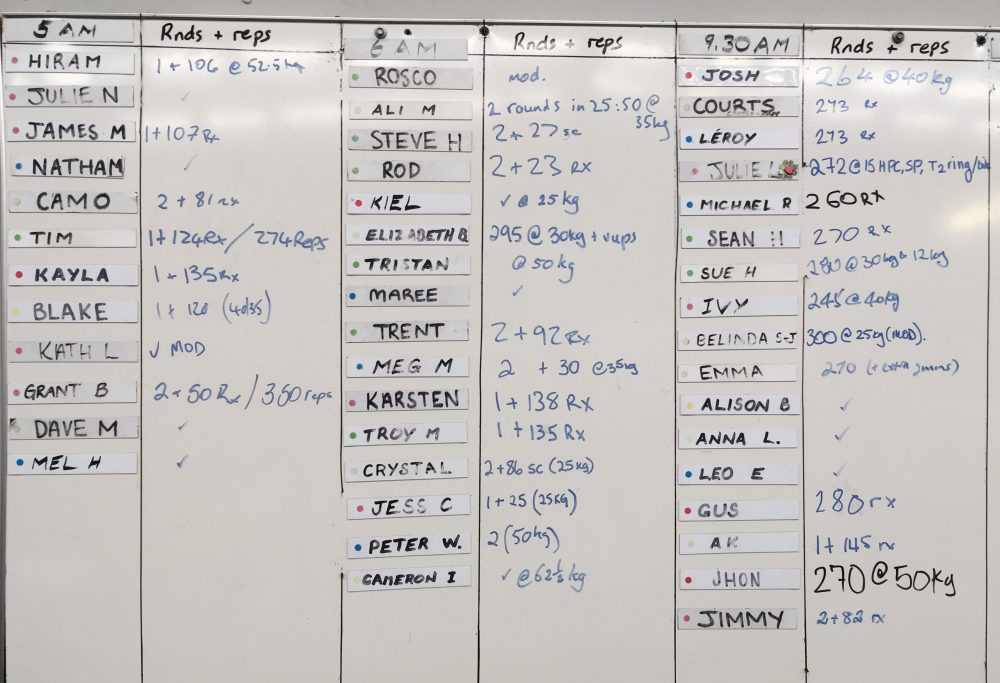 5 AM Rnds + reps
HIRAM 1 + 106 @ 52.5kg
JULIE N ✓
JAMES M 1+107 Rx
NATHAM ✓
CAMO 2 + 81 rx
TIM 1+124Rx / 274 Reps
KAYLA 1 + 135 Rx
BLAKE 1 + 120 (40/35)
KATH L ✓ MOD
GRANT B 2 + 50 Rx / 350 reps
DAVE M ✓
MEL H ✓
6 AM Rnds + reps
ROSCO mod.
ALI M 2 rounds in 25:50 @ 35kg
STEVE H 2 + 27 sc
ROD 2 + 23 RX
KIEL ✓ @ 25kg
ELIZABETH B 295 @ 30kg + vups
TRISTAN @ 50kg
MAREE ✓
TRENT 2 + 92 Rx
MEG M 2 + 30 @35kg
KARSTEN 1 + 138 Rx
TROY M 1 + 135 Rx
CRYSTAL 2+86 sc (25kg)
JESS C 1 + 25 (25kg)
PETER W. 2 (50kg)
CAMERON I ✓ @ 62½ kg
9.30 AM Rnds + reps
JOSH 264 @ 40kg
COURTS 273 Rx
LÉROY 273 Rx
JULIE L 272 @ 15 HPC, SP, T2 ring/
MICHAEL R 260 RX
SEAN H 270 RX
SUE H 280 @ 30kg & 12kg
IVY 245 @ 40kg
BELINDA S-J 300 @ 25kg (MOD).
EMMA 270 (+ extra
ALISON B ✓
ANNA L. ✓
LEO E ✓
GUS 280 rx
AK 1 + 145 rx
JHON 270 @ 50kg
JIMMY 2+82 rx